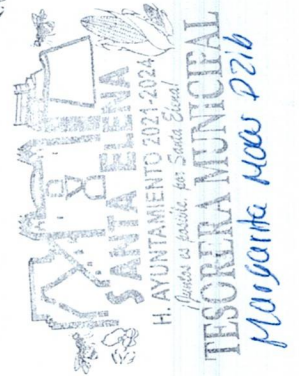 SANTA ELENA
H. AYUNTAMIENTO 2021-2024
¡Juntos es posible, por Santa Elena!
TESORERA MUNICIPAL
Margarita Moo Dzib